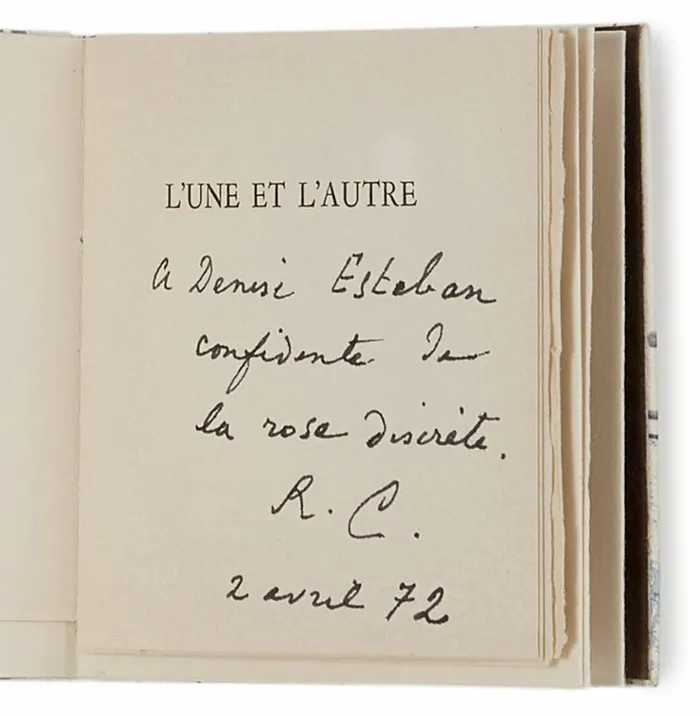 L'UNE ET L'AUTRE
A Denise Esteban
confidente de
la rose discrète.
R. C.
2 avril 72